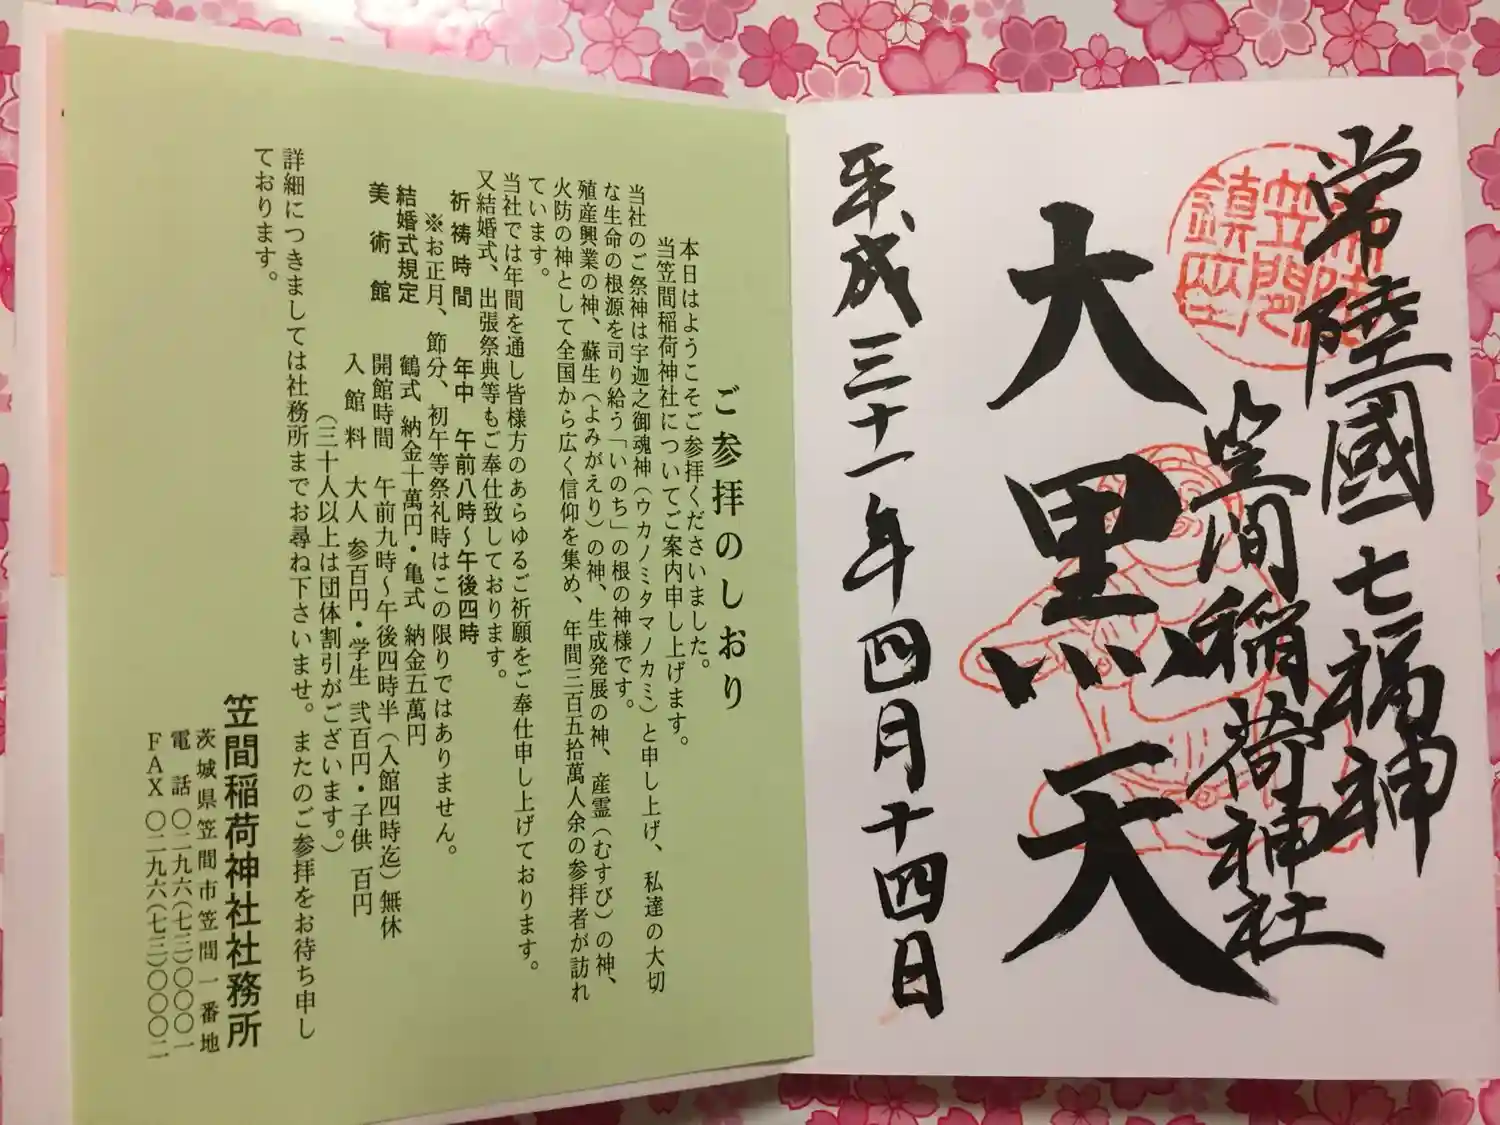 常陸國七福神
笠間稲荷神社
大黒天
平成三十一年四月十四日
笠間
鎮座
ご参拝のしおり
本日はようこそご参拝くださいました。
当笠間稲荷神社についてご案内申し上げます。
当社のご祭神は宇迦之御魂神（ウカノミタマノカミ）と申し上げ、私達の大切
な生命の根源を司り給う「いのち」の根の神様です。
殖産興業の神、蘇生（よみがえり）の神、生成発展の神、産霊（むすび）の神、
火防の神として全国から広く信仰を集め、年間三百五拾萬人余の参拝者が訪れ
ています。
当社では年間を通し皆様方のあらゆるご祈願をご奉仕申し上げております。
又結婚式、出張祭典等もご奉仕致しております。
祈祷時間　年中　午前八時～午後四時
※お正月、節分、初午等祭礼時はこの限りではありません。
結婚式規定　鶴式　納金十萬円・亀式　納金五萬円
美術館　開館時間　午前九時～午後四時半（入館四時迄）無休
入館料　大人　参百円・学生　弐百円・子供　百円
（三十人以上は団体割引がございます。）
詳細につきましては社務所までお尋ね下さいませ。またのご参拝をお待ち申し
ております。
笠間稲荷神社社務所
茨城県笠間市笠間一番地
電話〇二九六（七三）〇〇〇一
ＦＡＸ〇二九六（七三）〇〇〇二